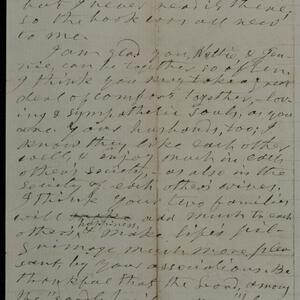 but I never read is there,
so the book was all new
to me.
I am glad you, Hattie, & Jen-
nie, can be together so often,
I think you may take a great
deal of comfort together,—lov-
ing & sympathetic souls, as you
are. Your husbands, too, I
know they like each other
well, & enjoy much in each
other's society,—as also in the
society of each other's wives.
I think your two families
will add much to each
happiness,
others, & make life's pil-
grimage much more plea-
sant, by your associations. Be
thankful that the word, among
the